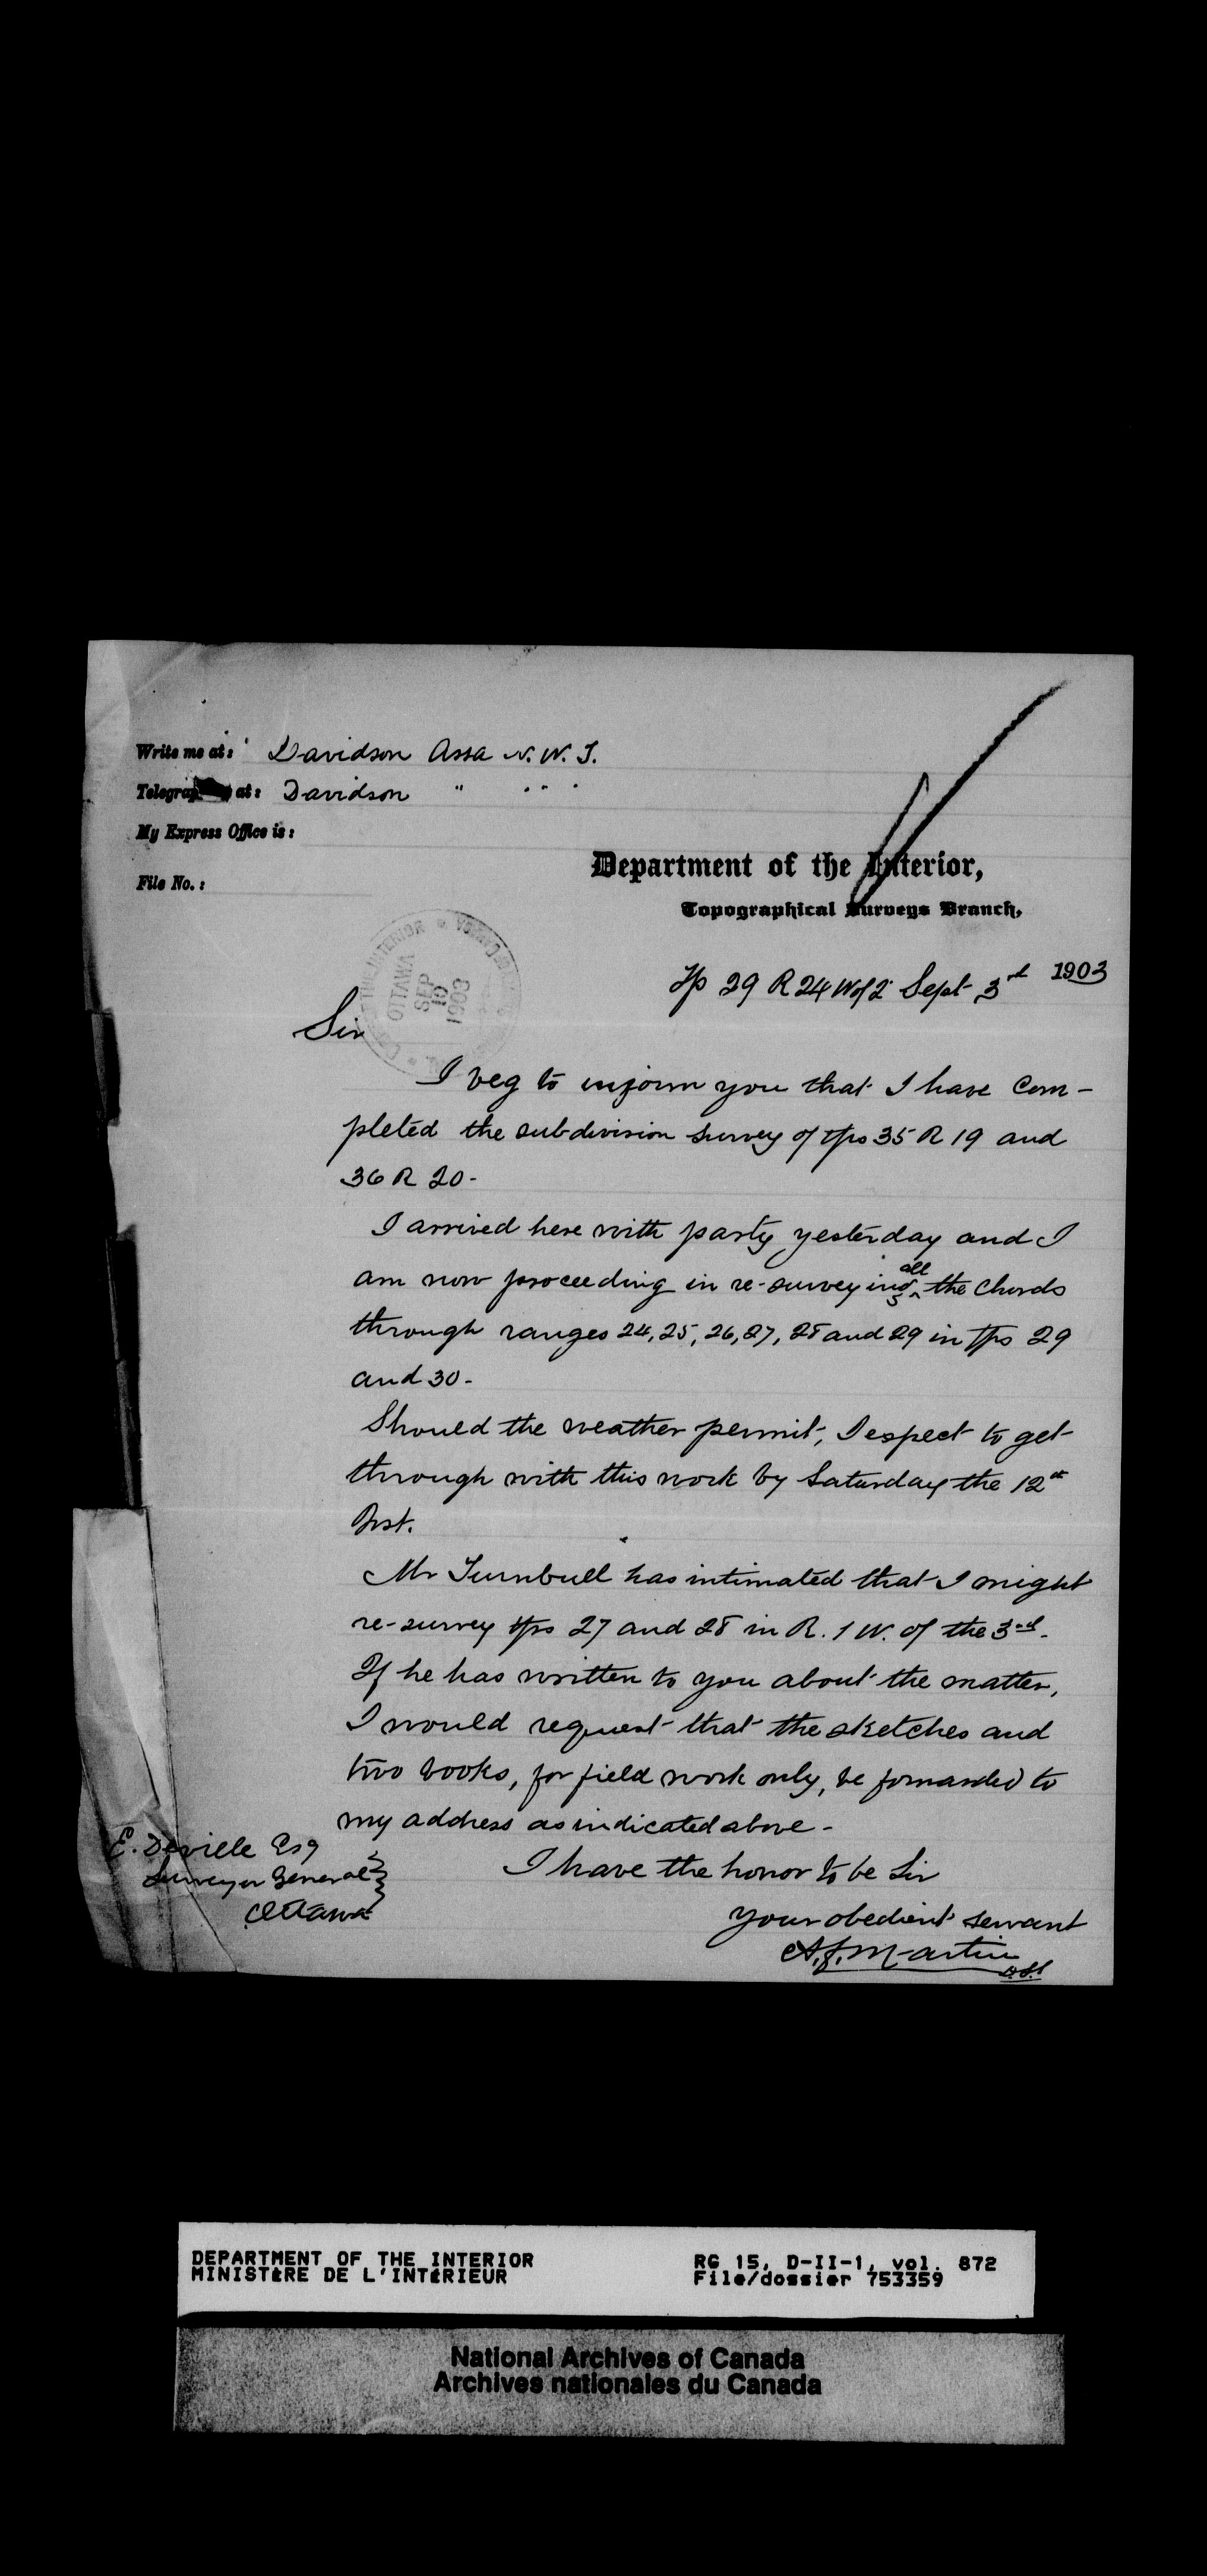 Write me at: Davidson Assa N. W. T.
Telegraph at: Davidson " " " "
My Express Office is:
File No.:
Department of the Interior,
Topographical Surveys Branch,
OTTAWA
SEP
10
1903
Tp 29 R 24 W of 2 Sept 3rd 1903
Sir
I beg to inform you that I have com-
pleted the subdivision survey of tps 35 R 19 and
36 R 20-
I arrived here with party yesterday and I
am now proceeding in re-surveying all the chords
through ranges 24, 25, 26, 27, 28 and 29 in tps 29
and 30-
Should the weather permit, I expect to get
through with this work by Saturday the 12th
Inst.
Mr Turnbull has intimated that I might
re-survey tps 27 and 28 in R. 1 W. of the 3rd-
If he has written to you about the matter,
I would request that the sketches and
two books, for field work only, be forwarded to
my address as indicated above-
E. Deville Esq
Surveyor General
Ottawa
I have the honor to be Sir
your obedient servant
A.F. Martin
D.L.S
DEPARTMENT OF THE INTERIOR
MINISTÈRE DE L'INTÉRIEUR
RG 15, D-II-1, vol. 872
File/dossier 753359
National Archives of Canada
Archives nationales du Canada